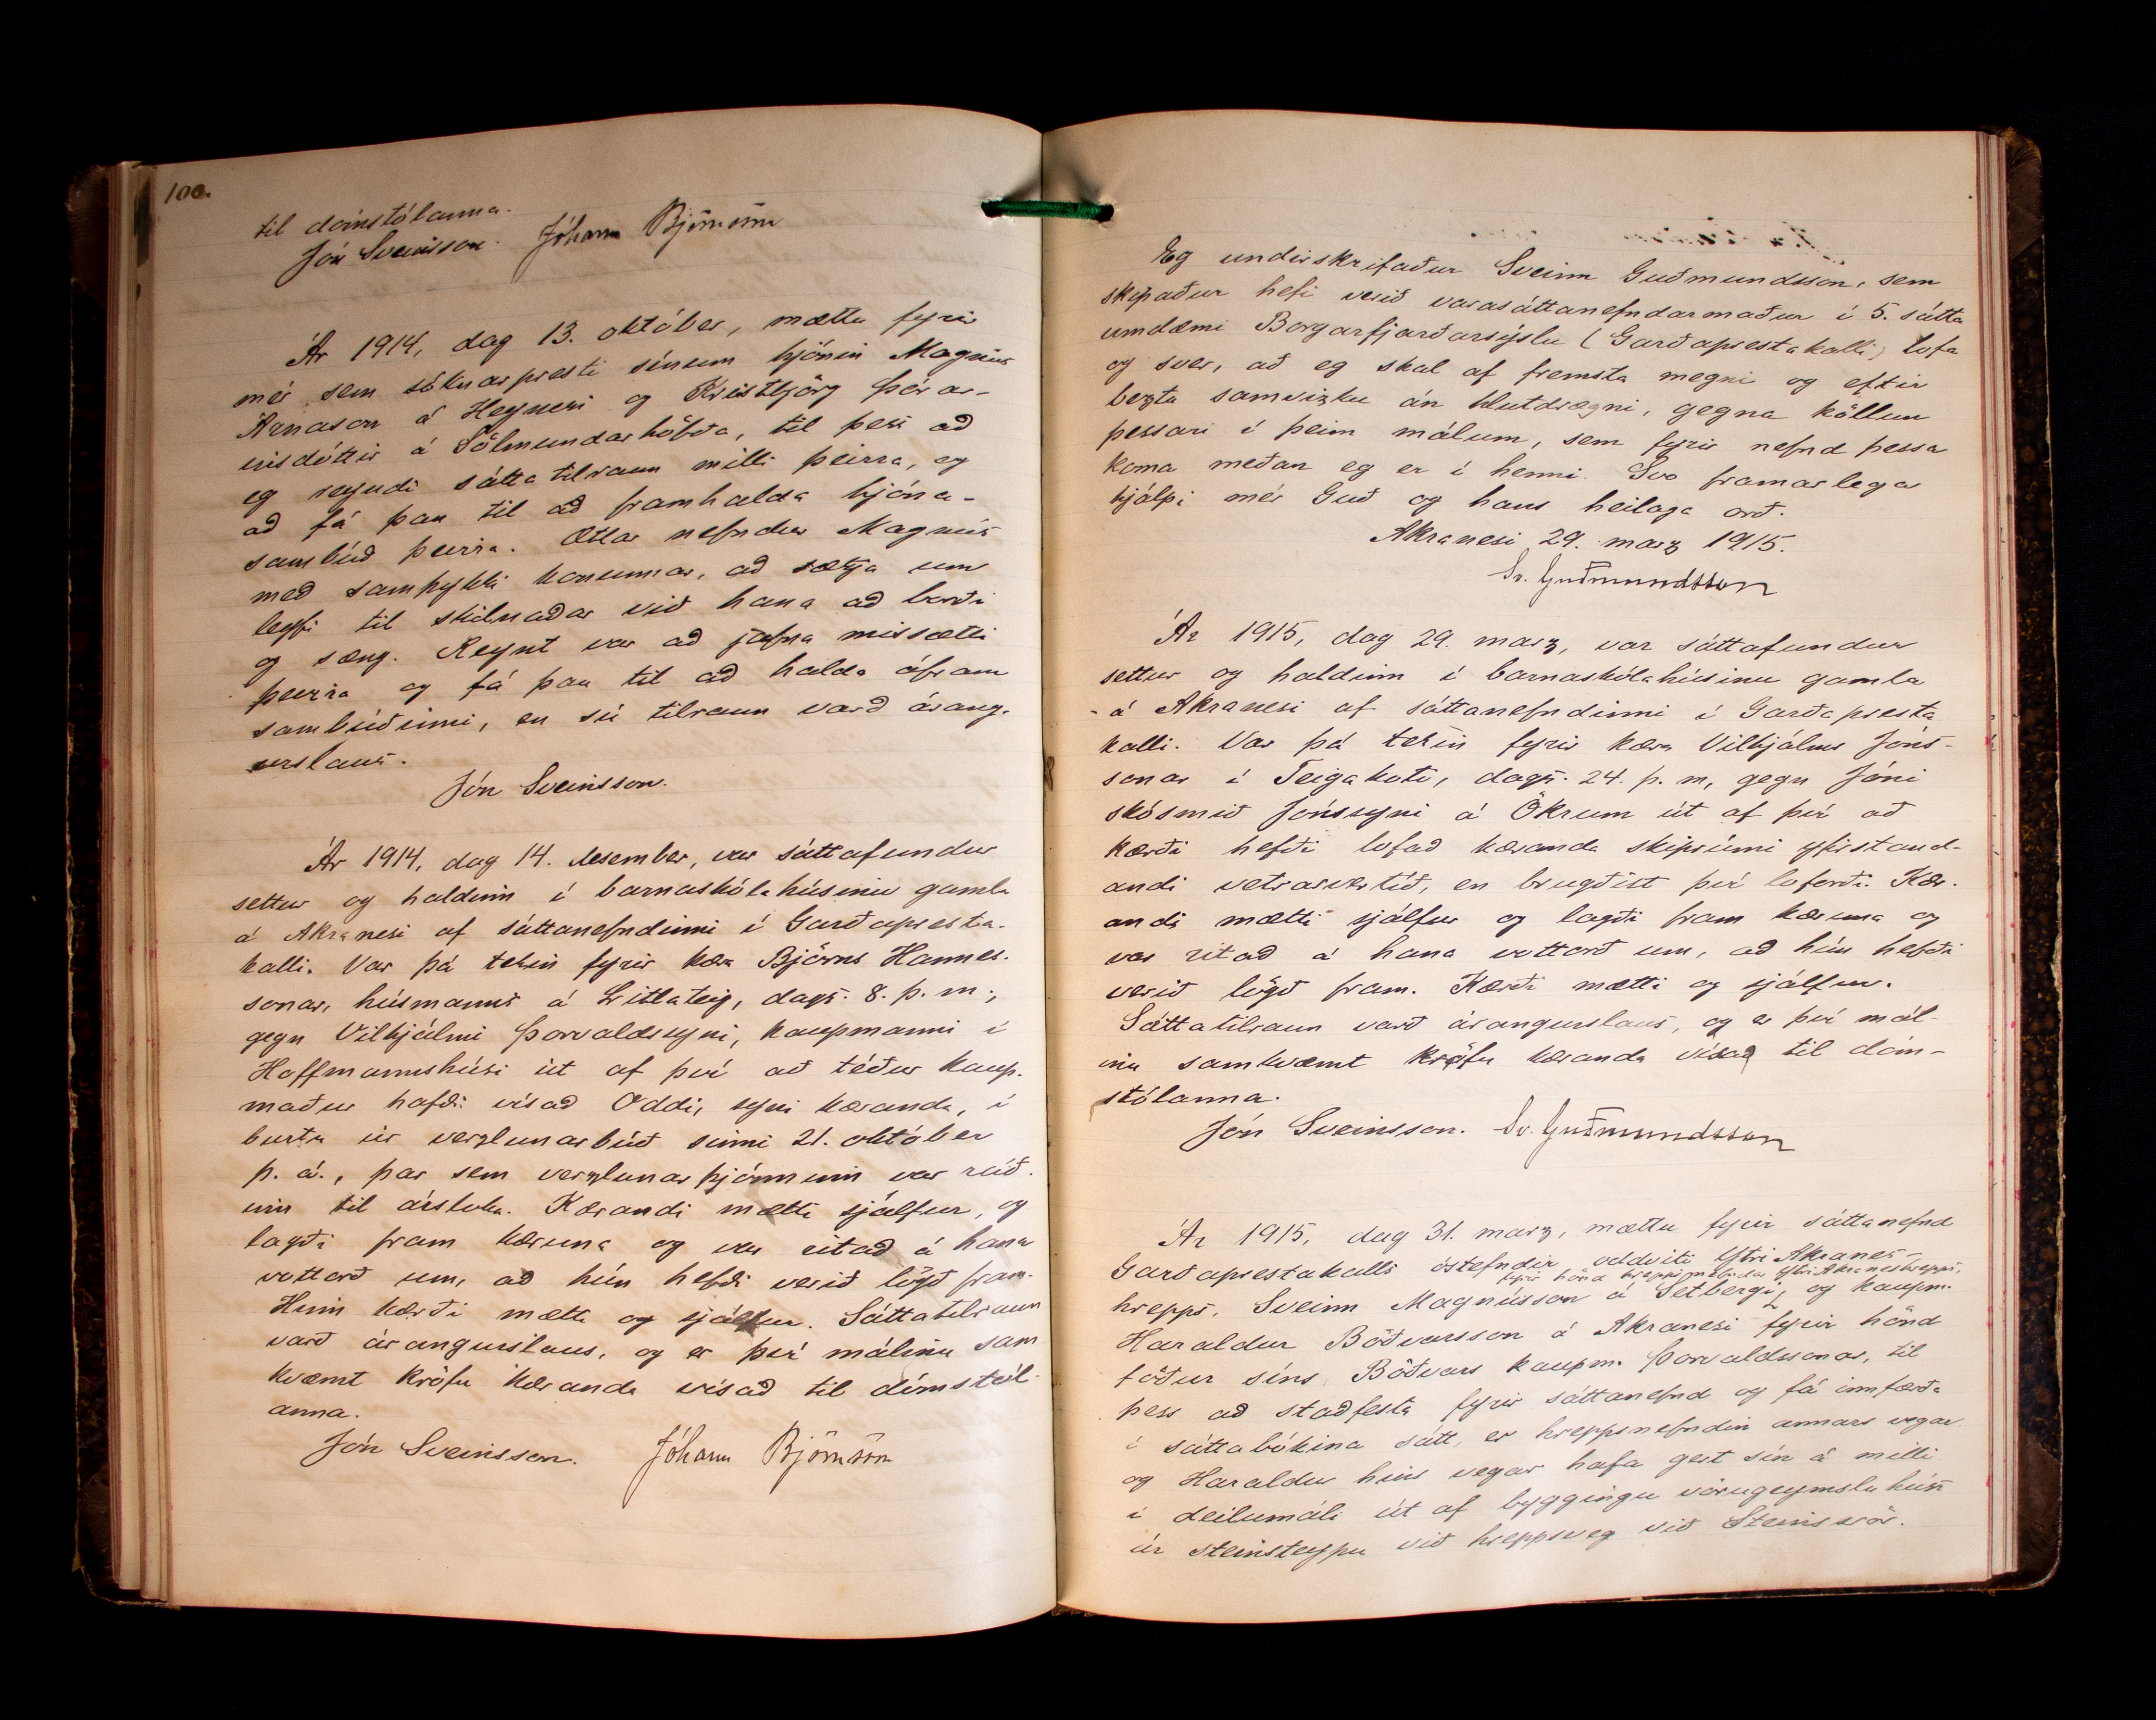 100.
til dómstólanna.
Jón Sveinsson. Jóhann Björnsson
Ár 1914, dag 13. október, mættu fyrir
mér sem sóknarpresti sínum hjónin Magnús
Árnason á Heynesi og Kristbjörg Þórar-
insdóttir á Sólmundarhöfða, til þess að
eg reyndi sáttatilraun milli þeirra, og
að fá þau til að framhalda hjóna-
sambúð þeirra. Ætlar nefndur Magnús
með samþykki konunnar, að sækja um
leyfi til skilnaðar við hana að borði
og sæng. Reynt var að jafna missætti
þeirra og fá þau til að halda áfram
sambúðinni, en sú tilraun varð árang-
urslaus.
Jón Sveinsson.
Ár 1914, dag 14. desember, var sáttafundur
settur og haldinn í barnaskólahúsinu gamla
á Akranesi af sáttanefndinni í Garðapresta-
kalli. Var þá tekin fyrir kæra Björns Hannes-
sonar, húsmanns á Litlateig, dags. 8. þ. m.,
gegn Vilhjálmi Þorvaldssyni, kaupmanni í
Hoffmannshúsi út af því að téður kaup-
maður hafði vísað Oddi, syni kæranda, í
burtu úr verzlunarbúð sinni 21. október
þ. á., þar sem verzlunarþjónninn var ráð-
inn til ársloka. Kærandi mætti sjálfur, og
lagði fram kæruna og var ritað á hana
vottorð um, að hún hefði verið lögð fram.
Hinn kærði mætti og sjálfur. Sáttatilraun
varð árangurslaus, og er því málinu sam
kvæmt kröfu kæranda vísað til dómstól-
anna.
Jón Sveinsson. Jóhann Björnsson
Eg undirskrifaður Sveinn Guðmundsson, sem
skipaður hefi verið varasáttanefndarmaður í 5. sátta
umdæmi Borgarfjarðarsýslu (Garðaprestakalli) lofa
og sver, að eg skal af fremsta megni og eftir
beztu samvizku án hlutdrægni, gegna köllun
þessari í þeim málum, sem fyrir nefnd þessa
koma meðan eg er í henni. Svo framarlega
hjálpi mér Guð og hans heilaga orð.
Akranesi 29. marz 1915.
Sv. Guðmundsson
Ár 1915, dag 29. marz, var sáttafundur
settur og haldinn í barnaskólahúsinu gamla
á Akranesi af sáttanefndinni í Garðapresta
kalli. Var þá tekin fyrir kæra Vilhjálms Jóns-
sonar í Teigakoti, dags. 24. þ. m, gegn Jóni
skósmið Jónssyni á Ökrum út af því að
kærði hefði lofað kæranda skiprúmi yfirstand-
andi vetrarvertíð, en brugðist því loforði. Kær-
andi mætti sjálfur og lagði fram kæruna og
var ritað á hana vottorð um, að hún hefði
verið lögð fram. Kærði mætti og sjálfur.
Sáttatilraun varð árangurslaus, og er því mál-
inu samkvæmt kröfu kæranda vísað til dóm-
stólanna.
Jón Sveinsson. Sv. Guðmundsson
Ár 1915, dag 31. marz, mættu fyrir sáttanefnd
Garðaprestakalls óstefndir, oddviti Ytri Akranes-
fyrir hönd hreppsnefndar Ytri Akraneshrepps,
hrepps, Sveinn Magnússon á Setbergi, og kaupm.
Haraldur Böðvarsson á Akranesi fyrir hönd
föður síns Böðvars kaupm. Þorvaldssonar, til
þess að staðfesta fyrir sáttanefnd og fá innfærða
í sáttabókina sátt, er hreppsnefndin annars vegar
og Haraldur hins vegar hafa gert sín á milli
í deilumáli út af byggingu vörugeymsluhúss
úr steinsteypu við hreppsveg við Steinsvör.